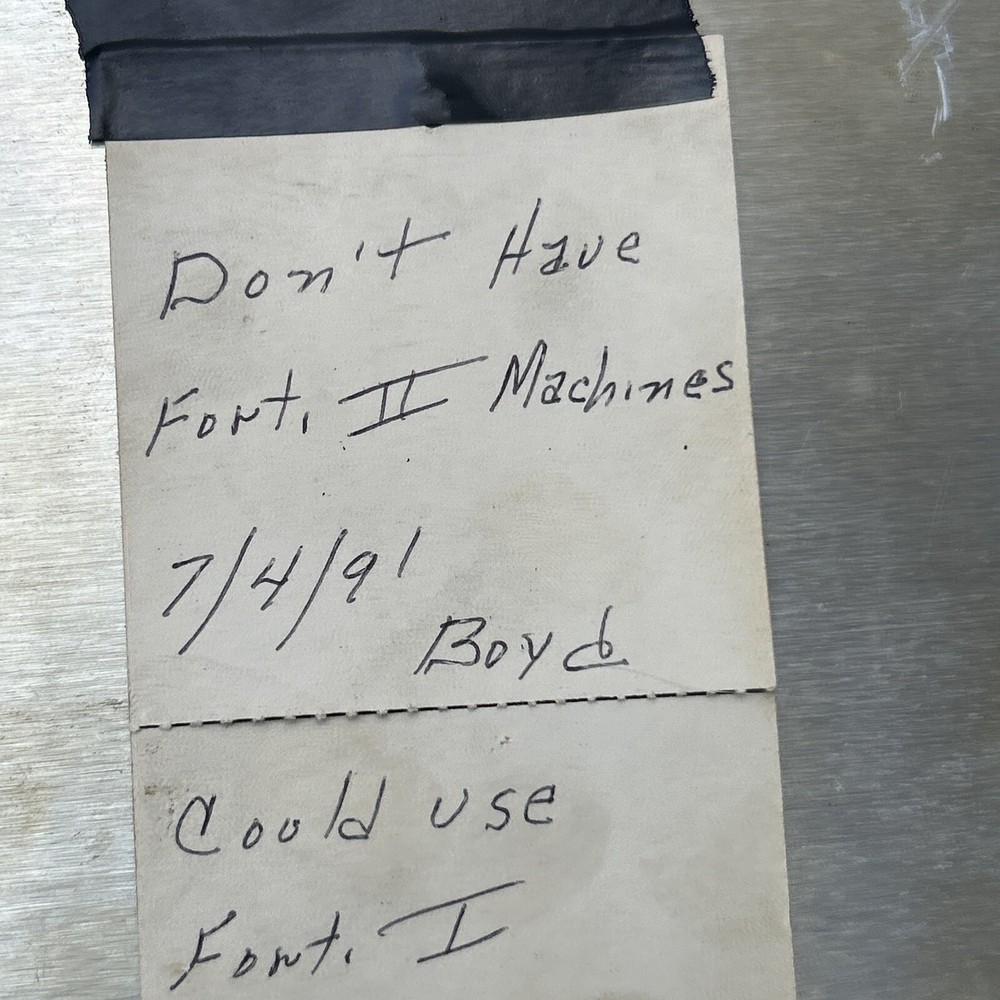 Don't Have
Font. II Machines
7/4/91
Boyd
Could use
Font. I